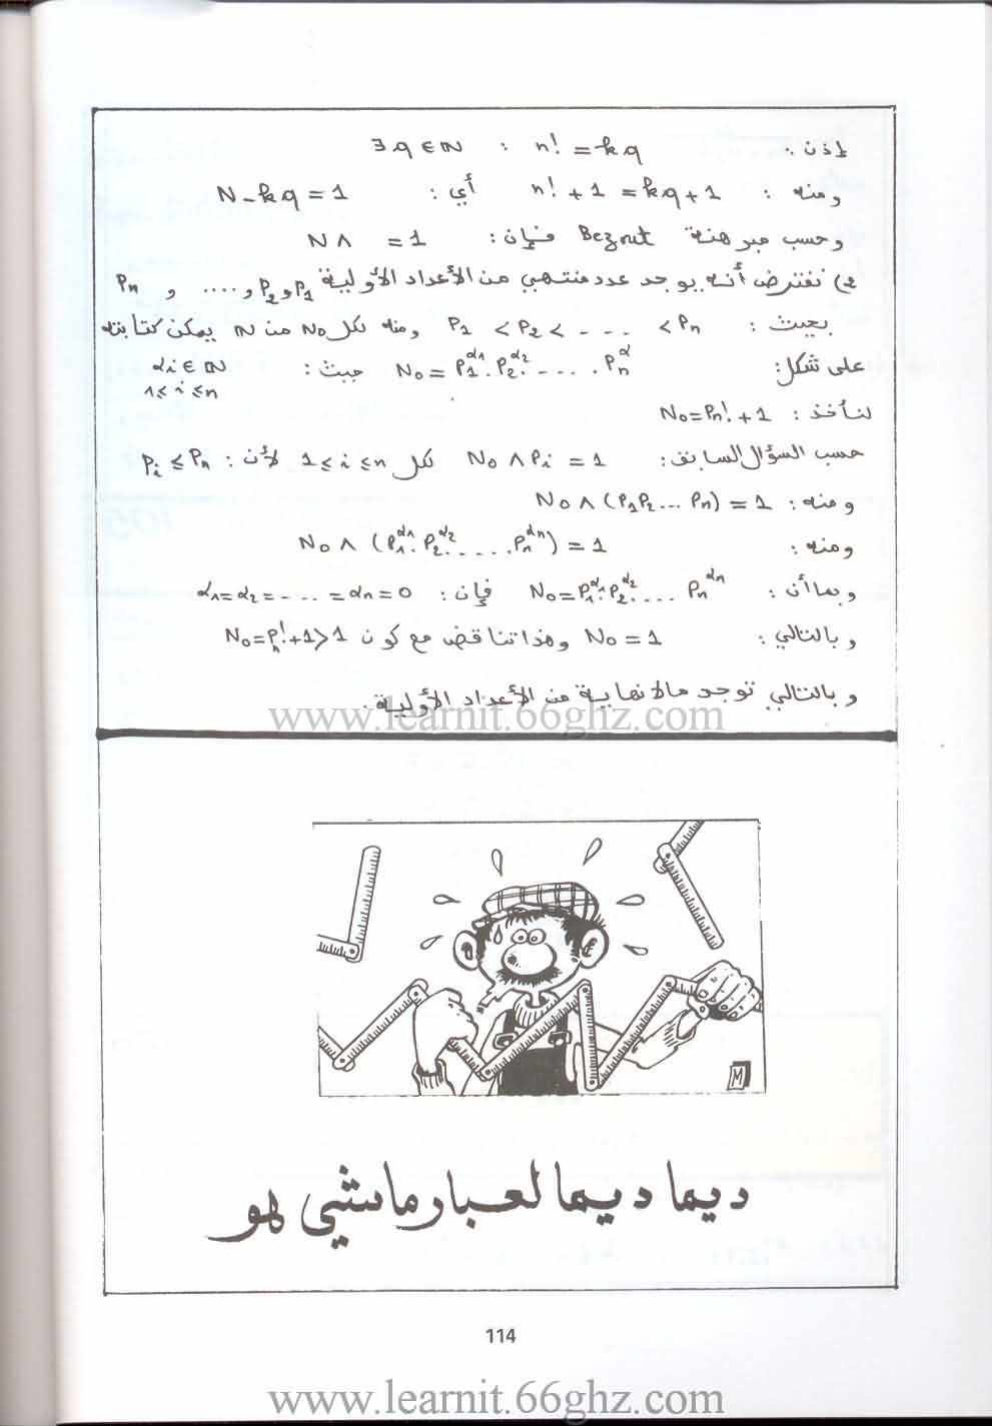 إذن : ∃ q ∈ ℕ : n! = kq
ومنه : n! + 1 = kq + 1 أي : N - kq = 1
وحسب مبرهنة Bezout فإن : N ∧ = 1
2) نفترض أنه يوجد عدد منتهي من الأعداد الأولية P₁ و P₂ و .... و Pₙ
بحيث : P₁ < P₂ < - - - < Pₙ ومنه لكل N₀ من ℕ يمكن كتابته
على شكل : N₀ = P₁^α₁ . P₂^α₂ . - ... . Pₙ^α حيث : αᵢ ∈ ℕ
1 ≤ i ≤ n
لنأخذ : N₀ = Pₙ! + 1
حسب السؤال السابق : N₀ ∧ Pᵢ = 1 لكل 1 ≤ i ≤ n لأن : Pᵢ ≤ Pₙ
ومنه : N₀ ∧ (P₁P₂ ... Pₙ) = 1
ومنه : N₀ ∧ (P₁^α₁ . P₂^α₂ ...... Pₙ^αₙ) = 1
وبما أن : N₀ = P₁^α₁ . P₂^α₂ .... Pₙ^αₙ فإن : α₁ = α₂ = - ... = αₙ = 0
وبالتالي : N₀ = 1 وهذا تناقض مع كون N₀ = Pₙ! + 1 > 1
وبالتالي توجد مالا نهاية من الأعداد الأولية .
www.learnit.66ghz.com
M
ديما ديما لعبار ماشي هو
114
www.learnit.66ghz.com